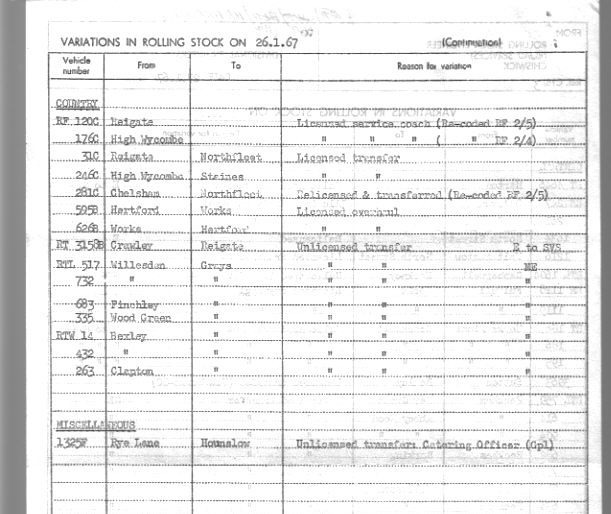 VARIATIONS IN ROLLING STOCK ON 26.1.67 (Continuation)
Vehicle number From To Reason for variation
COUNTRY
RF 120C Reigate Licensed service coach (Re-coded RF 2/5)
176C High Wycombe " " " ( " RF 2/4)
31C Reigate Northfleet Licensed transfer
246C High Wycombe Staines " "
281C Chelsham Northfleet Delicensed & transferred (Re-coded RF 2/5)
595B Hertford Works Licensed overhaul
626B Works Hertford " "
RT 3158B Crawley Reigate Unlicensed transfer R to SVS
RTL 517 Willesden Grays " " NE
732 " " " " "
683 Finchley " " " "
335 Wood Green " " " "
RTW 14 Bexley " " " "
432 " " " " "
263 Clapton " " " "
MISCELLANEOUS
1325F Rye Lane Hounslow Unlicensed transfer: Catering Officer (Gpl)